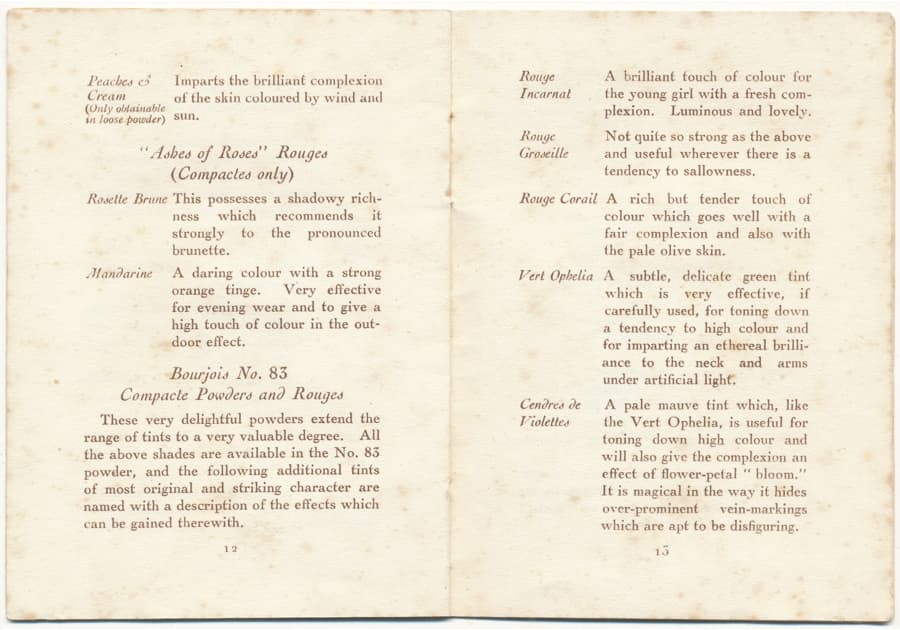 Peaches & Imparts the brilliant complexion
Cream of the skin coloured by wind and
(Only obtainable
in loose powder) sun.
"Ashes of Roses" Rouges
(Compactes only)
Rosette Brune This possesses a shadowy rich-
ness which recommends it
strongly to the pronounced
brunette.
Mandarine A daring colour with a strong
orange tinge. Very effective
for evening wear and to give a
high touch of colour in the out-
door effect.
Bourjois No. 83
Compacte Powders and Rouges
These very delightful powders extend the
range of tints to a very valuable degree. All
the above shades are available in the No. 83
powder, and the following additional tints
of most original and striking character are
named with a description of the effects which
can be gained therewith.
12
Rouge A brilliant touch of colour for
Incarnat the young girl with a fresh com-
plexion. Luminous and lovely.
Rouge Not quite so strong as the above
Groseille and useful wherever there is a
tendency to sallowness.
Rouge Corail A rich but tender touch of
colour which goes well with a
fair complexion and also with
the pale olive skin.
Vert Ophelia A subtle, delicate green tint
which is very effective, if
carefully used, for toning down
a tendency to high colour and
for imparting an ethereal brilli-
ance to the neck and arms
under artificial light.
Cendres de A pale mauve tint which, like
Violettes the Vert Ophelia, is useful for
toning down high colour and
will also give the complexion an
effect of flower-petal " bloom."
It is magical in the way it hides
over-prominent vein-markings
which are apt to be disfiguring.
13